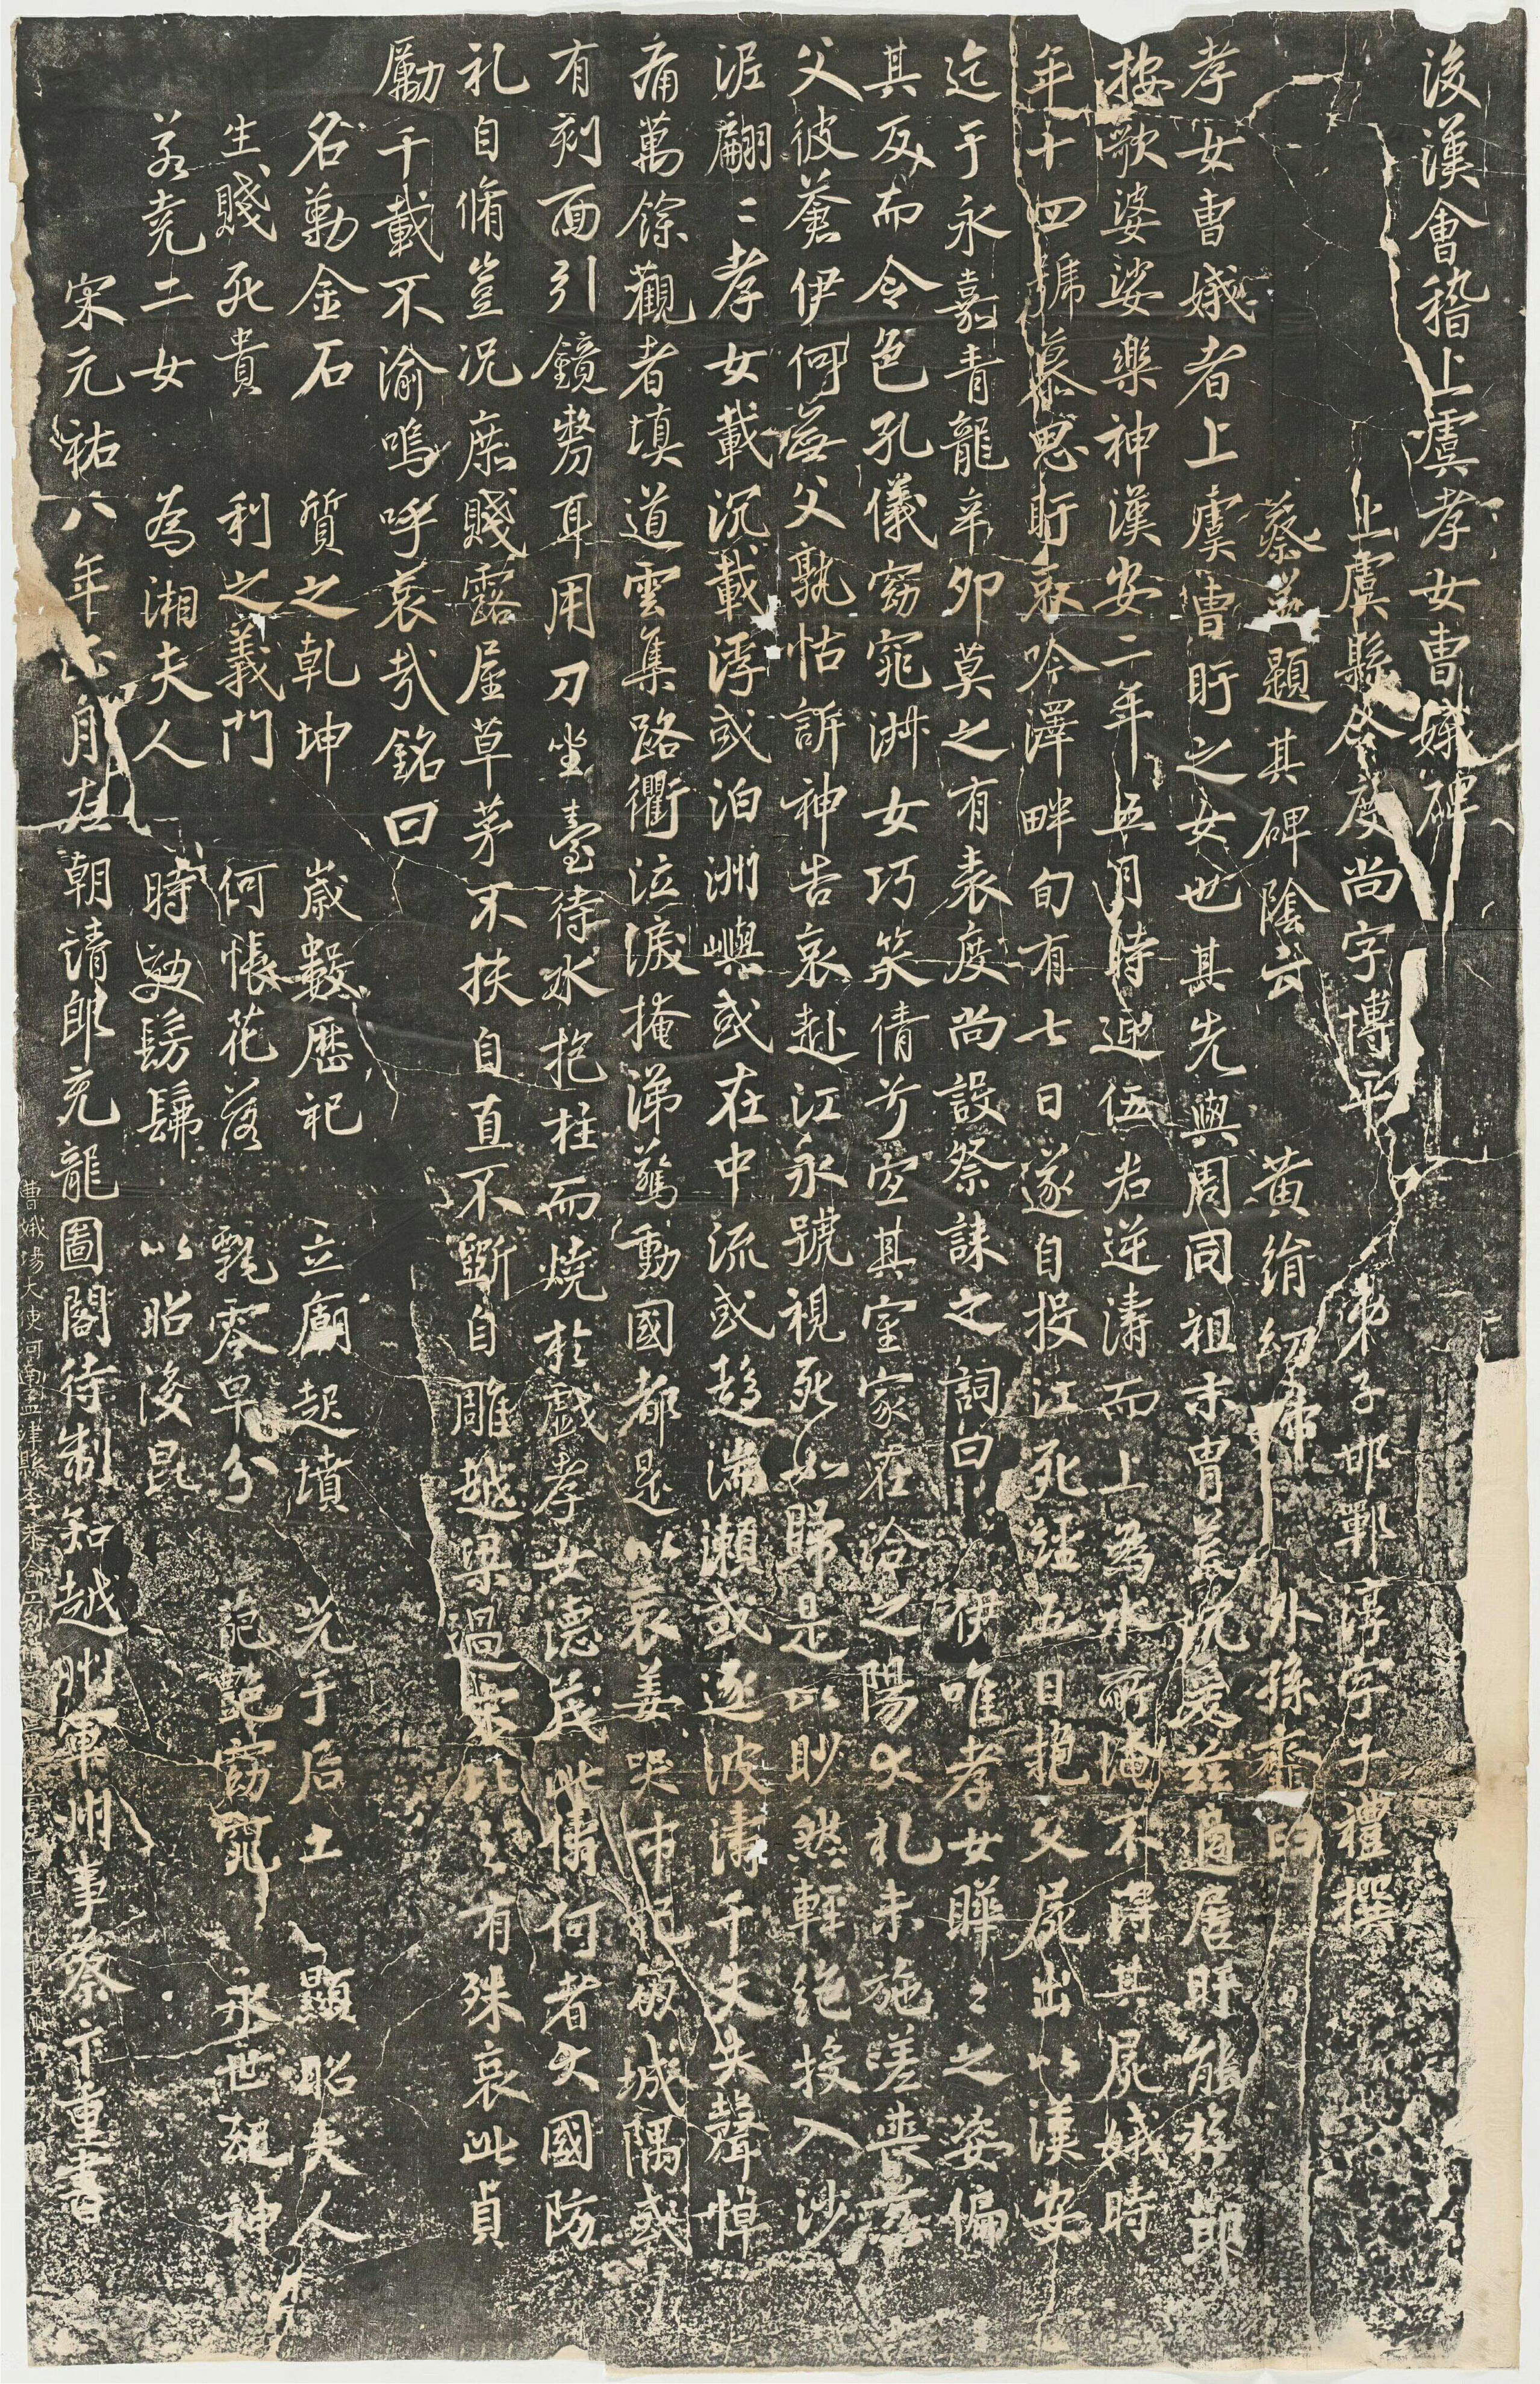 後漢會稽上虞孝女曹娥碑
上虞縣令度尚字博平 弟子邯鄲淳字子禮撰
蔡邕題其碑陰云 黃絹幼婦 外孫齏臼
孝女曹娥者上虞曹盱之女也其先與周同祖末胄荒沉爰茲適居盱能撫節
按歌婆娑樂神漢安二年五月時迎伍君逆濤而上為水所淹不得其屍娥時
年十四號慕思盱哀吟澤畔旬有七日遂自投江死經五日抱父屍出以漢安
迄于永嘉青龍辛卯莫之有表度尚設祭誄之詞曰 伊唯孝女曄〻之姿偏
其反而令色孔儀窈窕淑女巧笑倩兮宜其室家在洽之陽大礼未施嗟喪慈
父彼蒼伊何無父孰怙訴神告哀赴江永號視死如歸是以眇然輕絕投入沙
泥翩〻孝女載沉載浮或泊洲嶼或在中流或趨湍瀨或逐波濤千夫失聲悼
痛萬餘觀者填道雲集路衢泣淚掩涕驚動國都是以哀姜哭市杞崩城隅或
有刻面引鏡剺耳用刀坐臺待水抱柱而燒於戲孝女德茂此儔何者大國防
礼自脩豈況庶賤露屋草茅不扶自直不斲自雕越梁過宋比之有殊哀此貞
勵千載不渝嗚呼哀哉銘曰
名勒金石 質之乾坤 歲數歷祀 立廟起墳 光于后土 顯昭夫人
生賤死貴 利之義門 何悵花落 飄零早分 葩豔窈窕 永世配神
若堯二女 為湘夫人 時效髣髴 以昭後昆
宋元祐八年正月左朝請郎充龍圖閣待制知越州軍州事蔡卞重書
曹娥場大使河南孟津縣